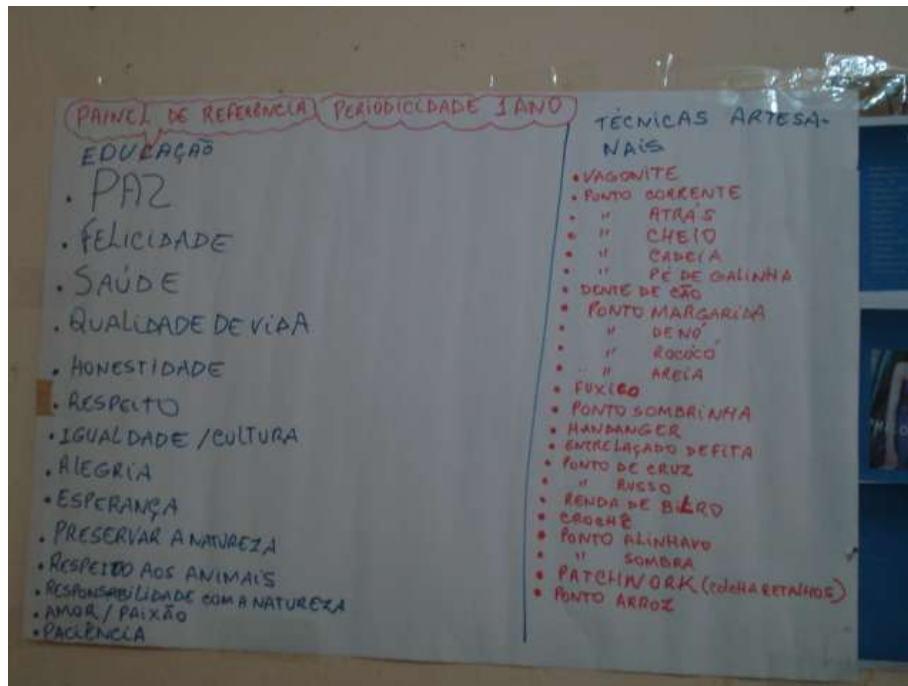 PAINEL DE REFERÊNCIA PERIODICIDADE 1 ANO
EDUCAÇÃO
• PAZ
• FELICIDADE
• SAÚDE
• QUALIDADE DE VIDA
• HONESTIDADE
• RESPEITO
• IGUALDADE / CULTURA
• ALEGRIA
• ESPERANÇA
• PRESERVAR A NATUREZA
• RESPEITO AOS ANIMAIS
• RESPONSABILIDADE COM A NATUREZA
• AMOR / PAIXÃO
• PACIÊNCIA
TÉCNICAS ARTESA-
NAIS
• VAGONITE
• PONTO CORRENTE
• " ATRÁS
• " CHEIO
• " CADEIA
• " PÉ DE GALINHA
• DENTE DE CÃO
• PONTO MARGARIDA
• " DE NÓ
• " ROCOCÓ
• " AREIA
• FUXICO
• PONTO SOMBRINHA
• HANDANGER
• ENTRELAÇADO DE FITA
• PONTO DE CRUZ
• " RUSSO
• RENDA DE BILRO
• CROCHÊ
• PONTO ALINHAVO
• " SOMBRA
• PATCHWORK (COLCHA RETALHOS)
• PONTO ARROZ